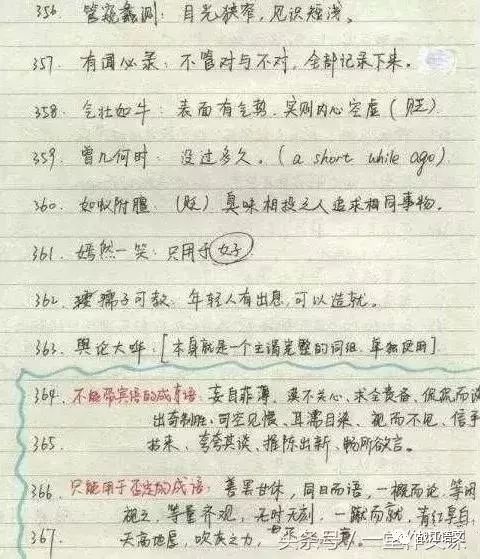 356. 管窥蠡测：目光狭窄，见识短浅。
357. 有闻必录：不管对与不对，全部记录下来。
358. 气壮如牛：表面有气势，实则内心空虚（贬）
359. 曾几何时：没过多久。（a short while ago）
360. 如蚁附膻：（贬）臭味相投之人追求相同事物。
361. 嫣然一笑：只用于女子
362. 孺子可教：年轻人有出息，可以造就。
363. 舆论大哗：[本身就是一个主谓完整的词组，单独使用]
364. 不能带宾语的成语：妄自菲薄、漠不关心、求全责备、侃侃而谈
出奇制胜、司空见惯、耳濡目染、视而不见、信手
365. 拈来、夸夸其谈、推陈出新、畅所欲言。
366. 只能用于否定的成语：善罢甘休，同日而语，一概而论，等闲
视之，等量齐观，无时无刻，一蹴而就，青红皂白，
367. 天高地厚，吹灰之力，
头条号